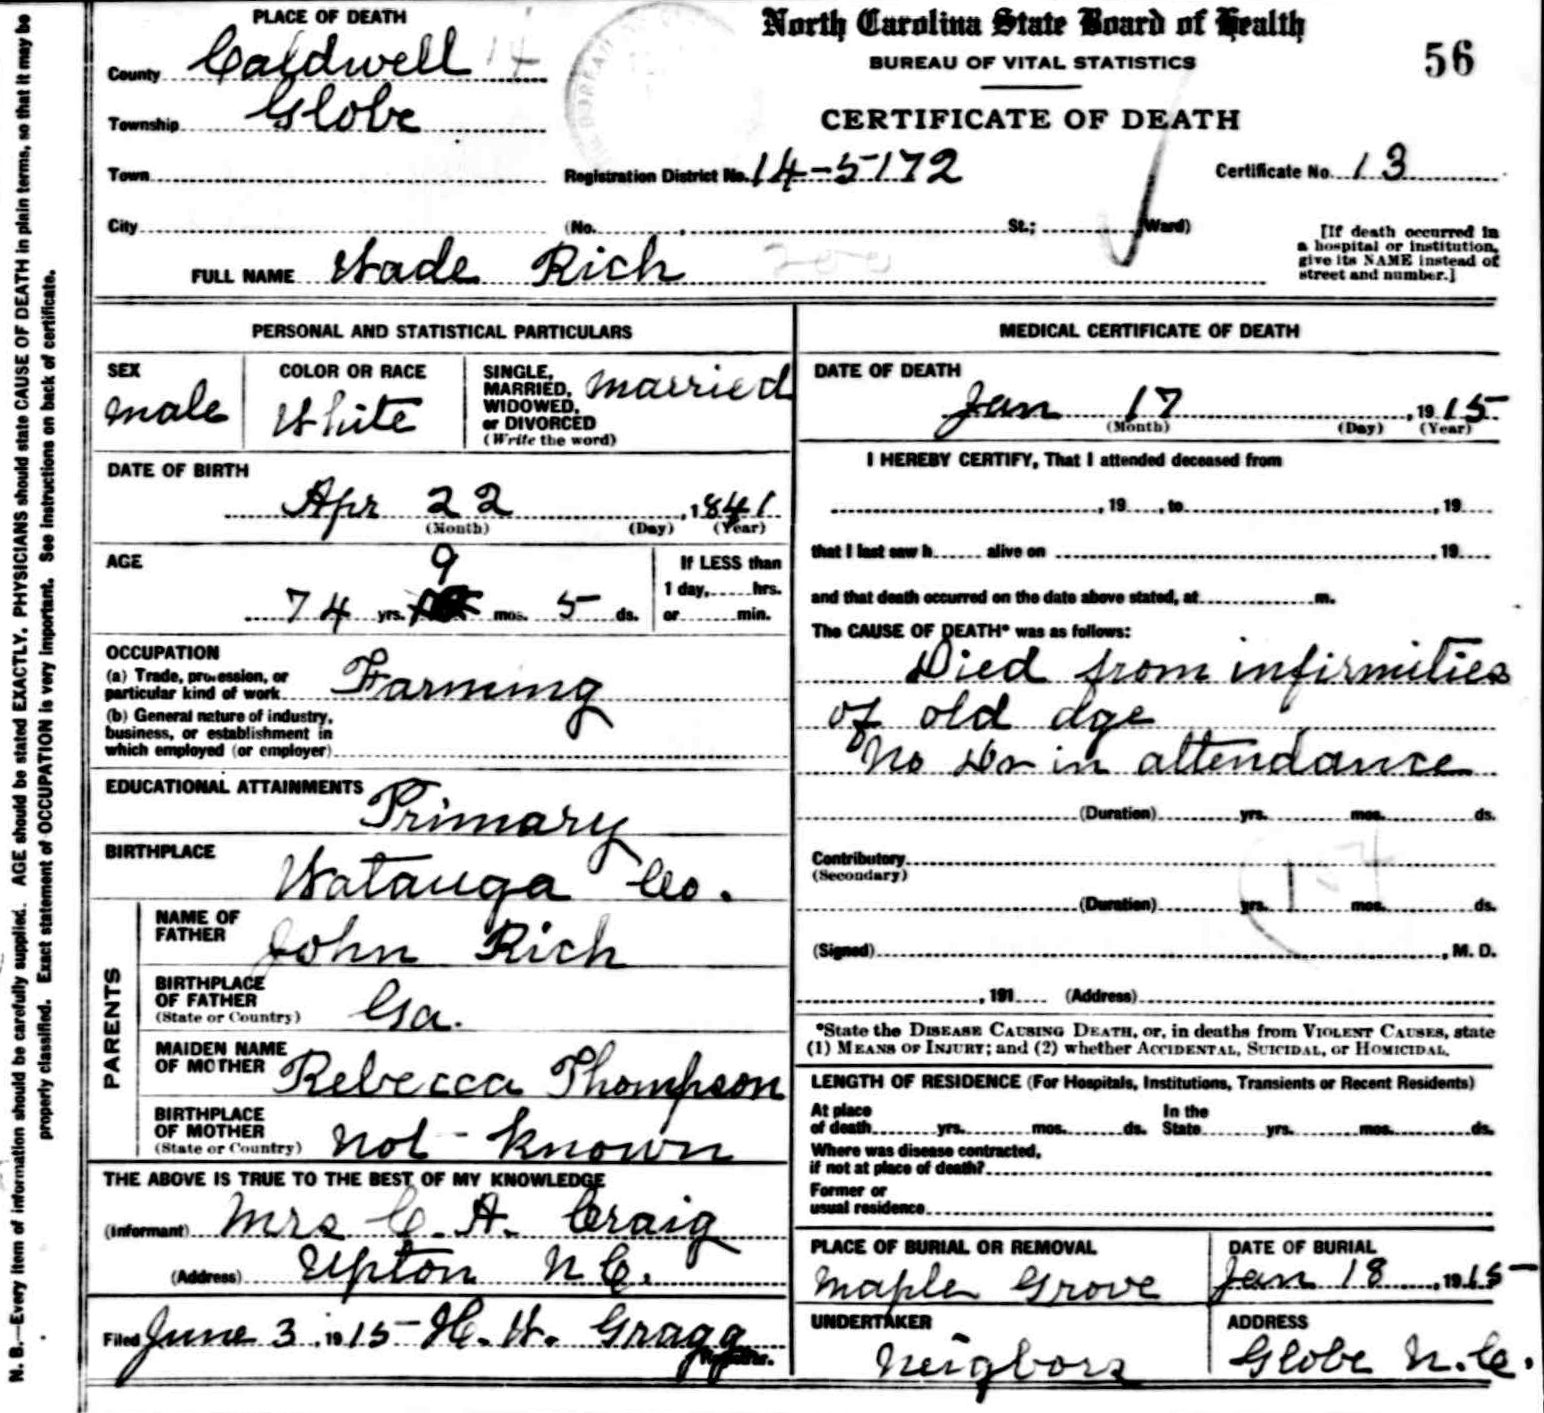 PLACE OF DEATH
County Caldwell 14
Township Globe
Town
City
North Carolina State Board of Health
BUREAU OF VITAL STATISTICS
CERTIFICATE OF DEATH
56
Registration District No. 14-5172
Certificate No. 13
(No. , St.; Ward)
[If death occurred in
a hospital or institution,
give its NAME instead of
street and number.]
FULL NAME Wade Rich 200
PERSONAL AND STATISTICAL PARTICULARS
SEX
male
COLOR OR RACE
White
SINGLE,
MARRIED,
WIDOWED,
or DIVORCED
(Write the word)
married
DATE OF BIRTH
Apr 22, 1841
(Month) (Day) (Year)
AGE
9
74 yrs. mos. 5 ds.
If LESS than
1 day, hrs.
or min.
OCCUPATION
(a) Trade, profession, or
particular kind of work Farming
(b) General nature of industry,
business, or establishment in
which employed (or employer)
EDUCATIONAL ATTAINMENTS
Primary
BIRTHPLACE
Watauga Co.
PARENTS
NAME OF
FATHER
John Rich
BIRTHPLACE
OF FATHER
(State or Country)
Ga.
MAIDEN NAME
OF MOTHER
Rebecca Thompson
BIRTHPLACE
OF MOTHER
(State or Country)
not - known
THE ABOVE IS TRUE TO THE BEST OF MY KNOWLEDGE
(Informant) Mrs C. A. Craig
(Address) Upton N.C.
Filed June 3, 1915 H. W. Gragg
Registrar.
MEDICAL CERTIFICATE OF DEATH
DATE OF DEATH
Jan 17, 1915
(Month) (Day) (Year)
I HEREBY CERTIFY, That I attended deceased from
, 19 , to , 19
that I last saw h alive on , 19
and that death occurred on the date above stated, at m.
The CAUSE OF DEATH* was as follows:
Died from infirmities
of old age
No Dr in attendance
(Duration) yrs. mos. ds.
Contributory
(Secondary)
(Duration) yrs. mos. ds.
(Signed) , M. D.
, 191 (Address)
*State the DISEASE CAUSING DEATH, or, in deaths from VIOLENT CAUSES, state
(1) MEANS OF INJURY; and (2) whether ACCIDENTAL, SUICIDAL, or HOMICIDAL.
LENGTH OF RESIDENCE (For Hospitals, Institutions, Transients or Recent Residents)
At place
of death yrs. mos. ds.
In the
State yrs. mos. ds.
Where was disease contracted,
if not at place of death?
Former or
usual residence
PLACE OF BURIAL OR REMOVAL
Maple Grove
DATE OF BURIAL
Jan 18, 1915
UNDERTAKER
Neigbors
ADDRESS
Globe N.C.
N. B.—Every item of information should be carefully supplied. AGE should be stated EXACTLY. PHYSICIANS should state CAUSE OF DEATH in plain terms, so that it may be
properly classified. Exact statement of OCCUPATION is very important. See instructions on back of certificate.